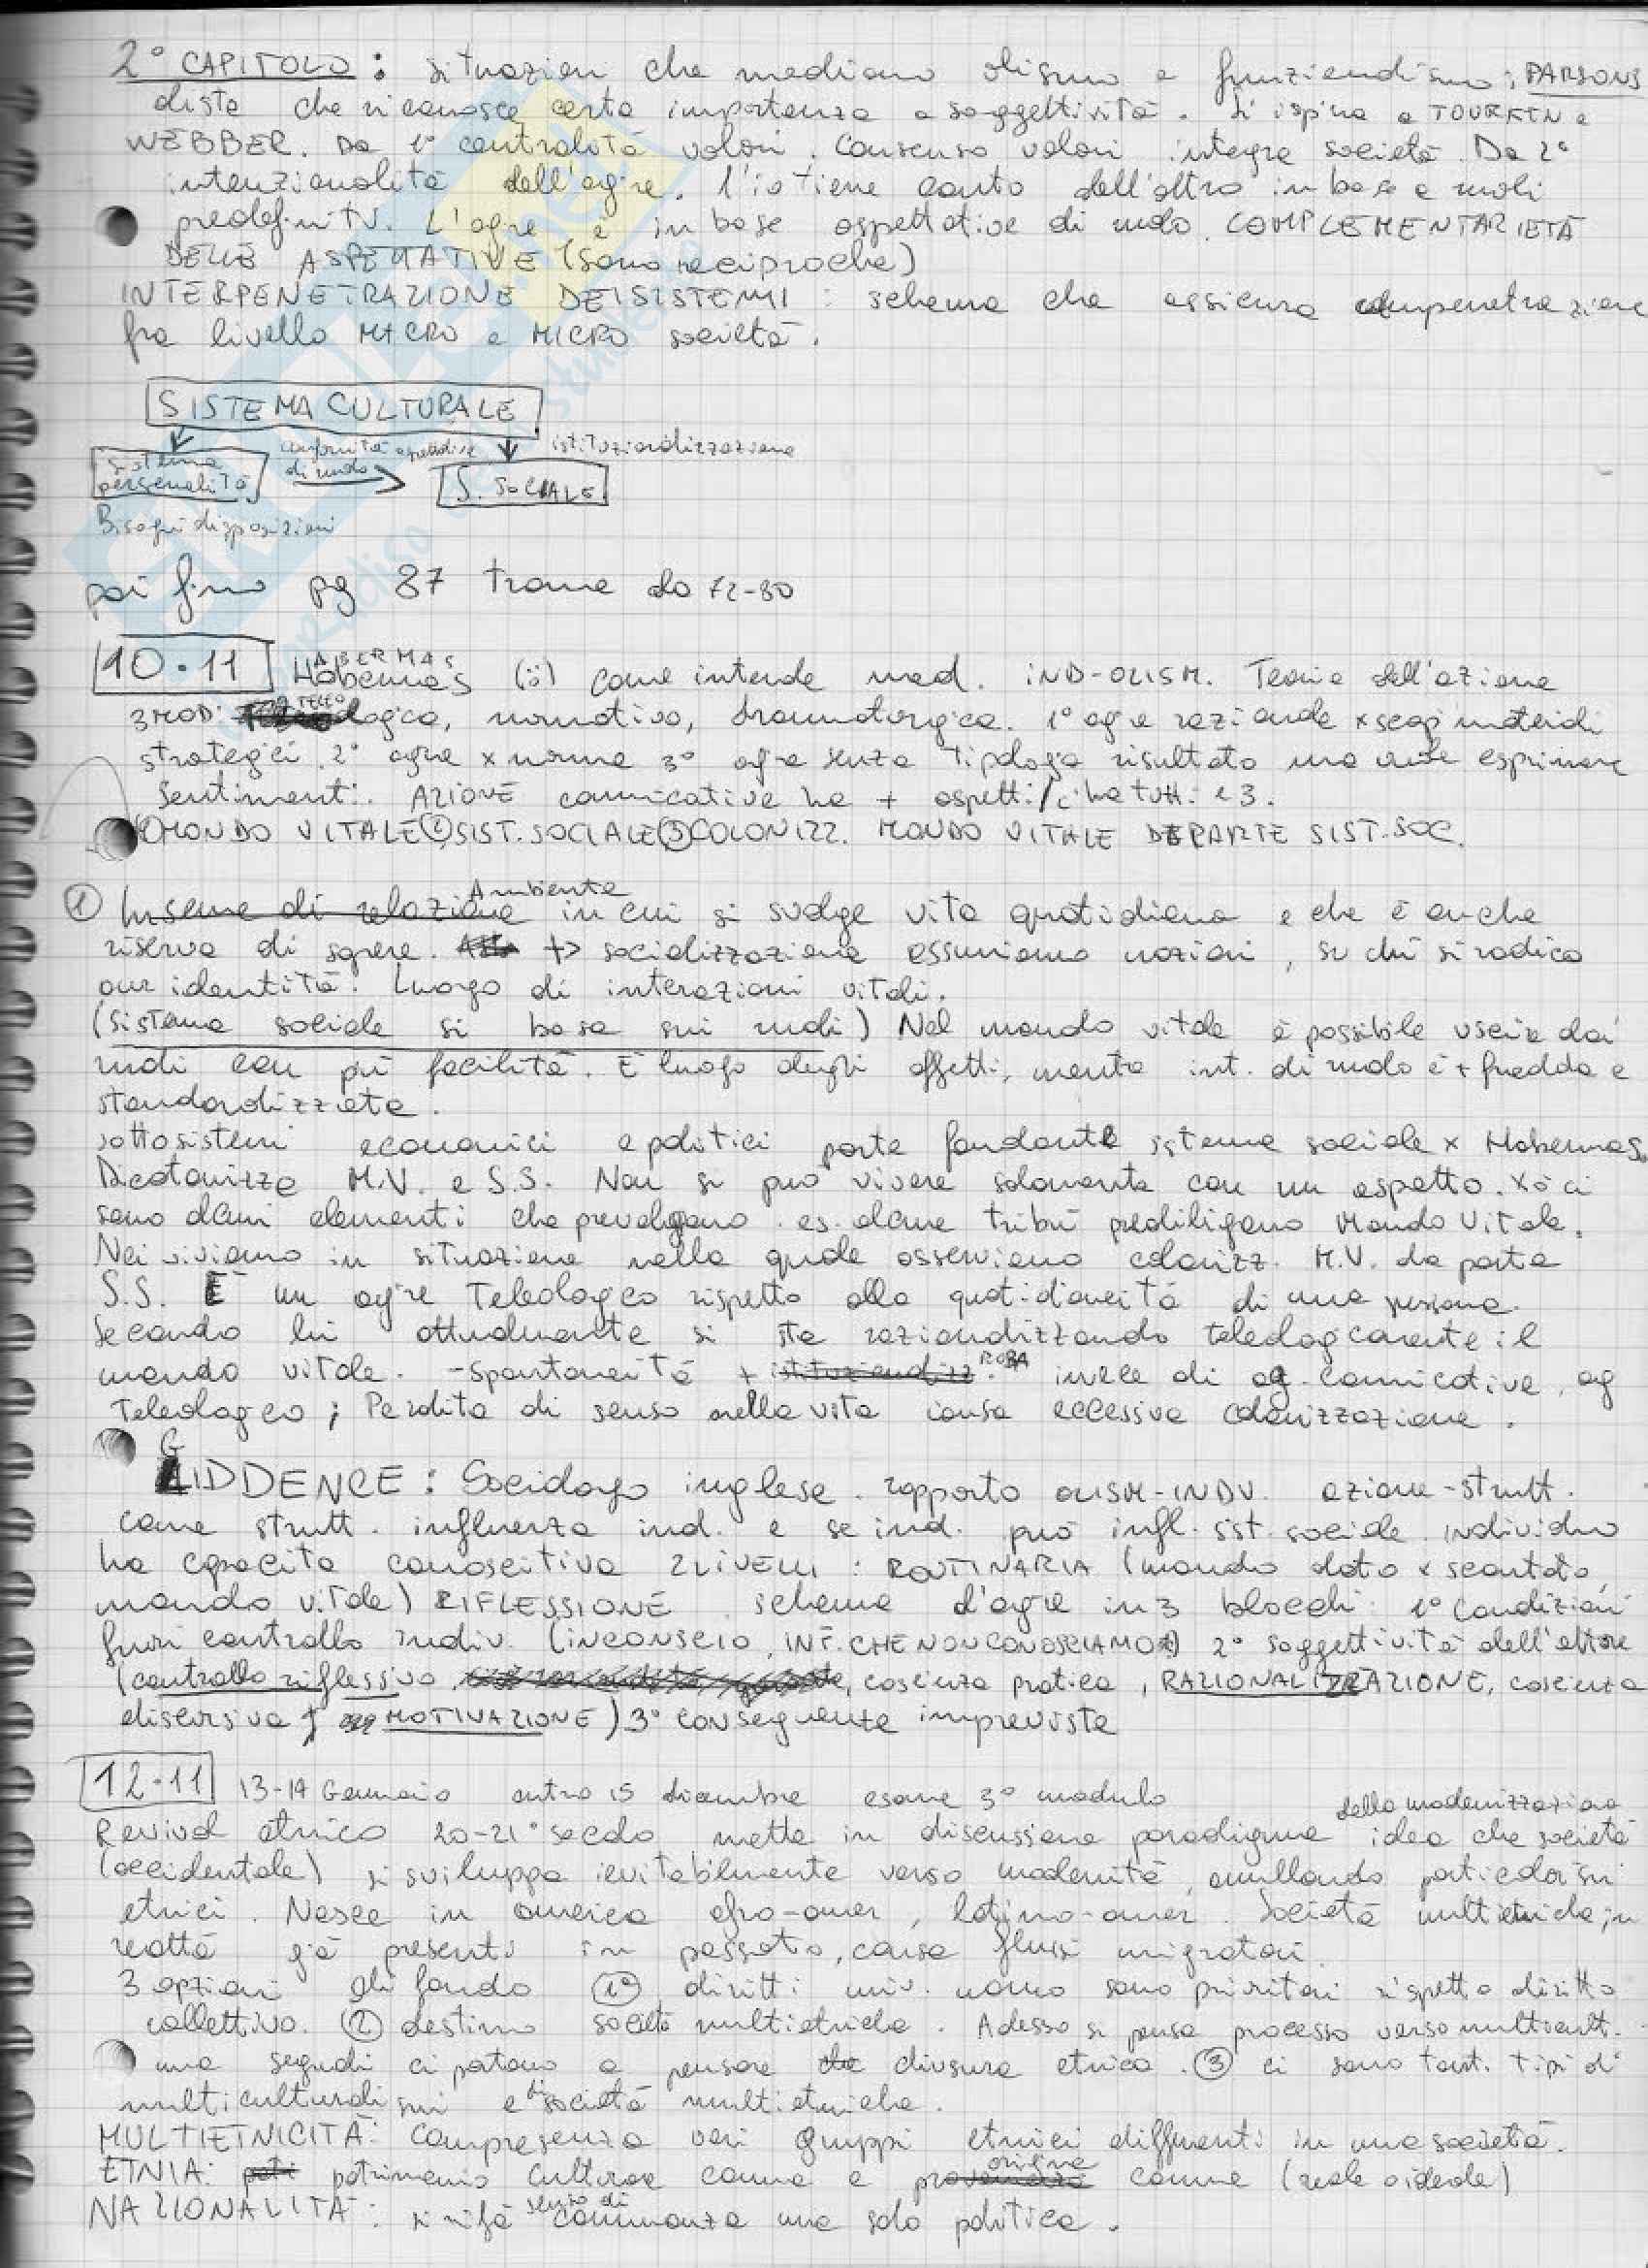 2° CAPITOLO: situazioni che mediano olismo e funzionalismo; PARSONS
olista che riconosce certa importanza a soggettività. Si ispira a
WEBBER. Da 1° centralità valori. Consenso valori integra società. Da 2°
intenzionalità dell'agire. L'io tiene conto dell'altro in base a ruoli
predefiniti. L'agire è in base aspettative di ruolo. COMPLEMENTARIETÀ
DELLE ASPETTATIVE (sono reciproche)
INTERPENETRAZIONE DEI SISTEMI: schema che assicura compenetrazione
fra livello MACRO e MICRO società.
SISTEMA CULTURALE
conformità aspettative istituzionalizzazione
sistema personalità di ruolo S. SOCIALE
Bisogni disposizioni
poi fino pg 87 tranne da 72-80
10.11 HABERMAS come intende med. IND-OLISM. Teoria dell'azione
3 MOD: TELEOlogica, normativa, drammaturgica. 1° agire razionale x scopi materiali
strategici. 2° agire x norme 3° agire senza tipologia risultato ma vuole esprimere
sentimenti. AZIONE comunicativa ha + aspetti / ha tutti e 3.
① MONDO VITALE ② SIST. SOCIALE ③ COLONIZZ. MONDO VITALE DA PARTE SIST. SOC.
① Insieme di relazione Ambiente in cui si svolge vita quotidiana e che è anche
riserva di sapere. socializzazione assumiamo nozioni, su chi si radica
our identità. Luogo di interazioni vitali.
(sistema sociale si basa sui ruoli) Nel mondo vitale è possibile uscire dai
ruoli con più facilità. È luogo degli affetti, mentre int. di ruolo è + fredda e
standardizzata.
sottosistemi economici e politici parte fondante sistema sociale x Habermas.
Dicotomizza M.V. e S.S. Non si può vivere solamente con un aspetto. Xò ci
sono alcuni elementi che prevalgono. es. alcune tribù prediligono Mondo Vitale.
Noi viviamo in situazione nella quale osserviamo colonizz. M.V. da parte
S.S. È un agire Teleologico rispetto alla quotidianeità di una persona.
Secondo lui attualmente si sta razionalizzando teleologicamente il
mondo vitale. - spontaneità + istituzionalizz. ROBA invece di ag. comunicativa, ag
Teleologico; Perdita di senso nella vita causa eccessiva colonizzazione.
GIDDENCE: Sociologo inglese. rapporto OLISM-INDV. azione-strutt.
come strutt. influenza ind. e se ind. può infl. sist. sociale. individuo
ha capacità conoscitiva 2 LIVELLI: ROUTINARIA (mondo dato x scontato,
mondo vitale) RIFLESSIONE. schema d'agire in 3 blocchi: 1° condizioni
fuori controllo indiv. (INCONSCIO, INF. CHE NON CONOSCIAMO) 2° soggettività dell'attore
(controllo riflessivo, coscienza pratica, RAZIONALIZZAZIONE, coscienza
discorsiva, MOTIVAZIONE) 3° conseguenze impreviste
12.11 13-14 Gennaio entro 15 dicembre esame 3° modulo
Revival etnico 20-21° secolo mette in discussione paradigma della modernizzazione idea che società
(occidentale) si sviluppa inevitabilmente verso modernità, annullando particolarismi
etnici. Nasce in america afro-amer, latino-amer. Società multietniche, in
realtà già presenti in passato, causa flussi migratori.
3 opzioni di fondo ① diritti univ. uomo sono prioritari rispetto diritto
collettivo. ② destino società multietniche. Adesso si pensa processo verso multicult.
ma segnali ci portano a pensare chiusura etnica. ③ ci sono tanti tipi di
multiculturalismi e di società multietniche.
MULTIETNICITÀ: compresenza vari gruppi etnici differenti in una società.
ETNIA: patrimonio culturae comune e origine comune (reale o ideale)
NAZIONALITÀ: si rifà senso di comunanza ma solo politica.